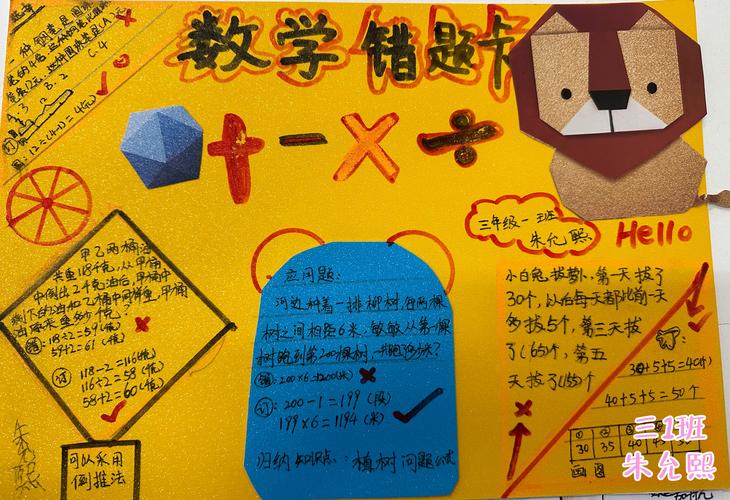 数学错题卡
一种钢笔是圆
A:3 B.2 C.4
12÷(4-1)=4(元)
三年级一班
朱允熙
Hello
甲乙两桶油
共重118千克,从甲桶
中倒出2千克油后,甲桶中
错:118÷2=59(千克)
59+2=61(千克)
订 118-2=116(千克)
116÷2=58(千克)
58+2=60(千克)
可以采用
倒推法
朱允熙
应用题:
河边种着一排柳树,每两棵
树之间相距6米,敏敏从第一棵
树跑到第200棵树,一共跑多少米?
错:200×6=1200(米)
订:200-1=199(段)
199×6=1194(米)
归纳知识点:植树问题公式
小白兔拔萝卜,第一天拔了
30个,以后每天都比前一天
多拔5个,第三天拔
了(65)个,第五
天拔了(155)个
订:
30+5+5=40(个)
40+5+5=50个
① ②
30 35 40 45 50
画图
三1班
朱允熙